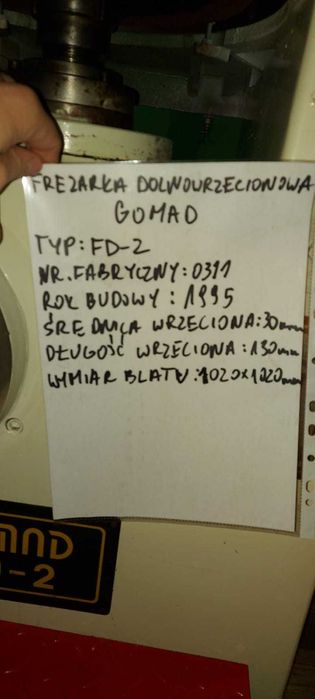 FREZARKA DOLNOWRZECIONOWA
GOMAD
TYP: FD-2
NR. FABRYCZNY: 0311
ROK BUDOWY : 1995
ŚREDNICA WRZECIONA: 30mm
DŁUGOŚĆ WRZECIONA : 130mm
WYMIAR BLATU : 1020x1020mm
MAD
-2